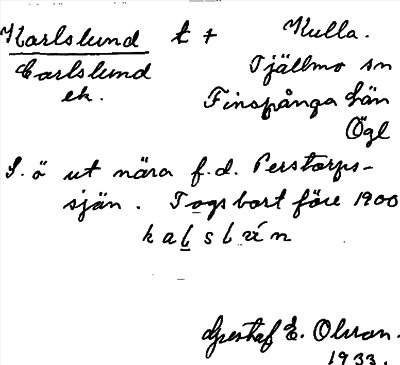 Karlslund t + Kulla.
Carlslund Tjällmo sn
ek. Finspånga län
Ögl
S. ö ut nära f.d. Perstorps-
sjön. Togs bort före 1900
Gustaf E. Olsson.
1933.